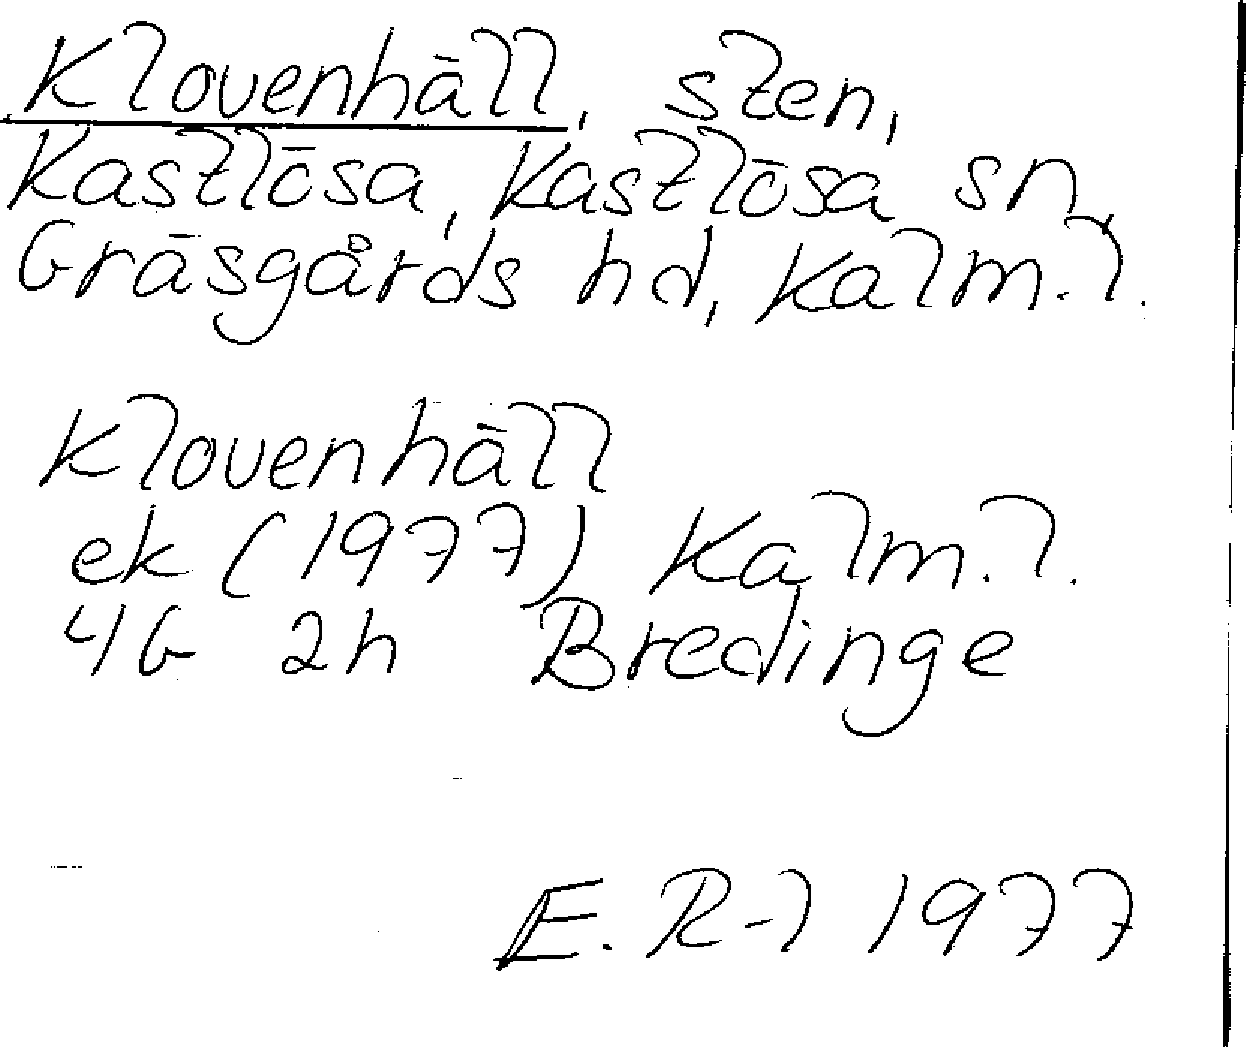 Klovenhäll, sten,
Kastlösa, Kastlösa sn,
Gräsgårds hd, Kalm.l.
Klovenhäll
ek (1977) Kalm.l.
4G 2h Bredinge
E. R-l 1977